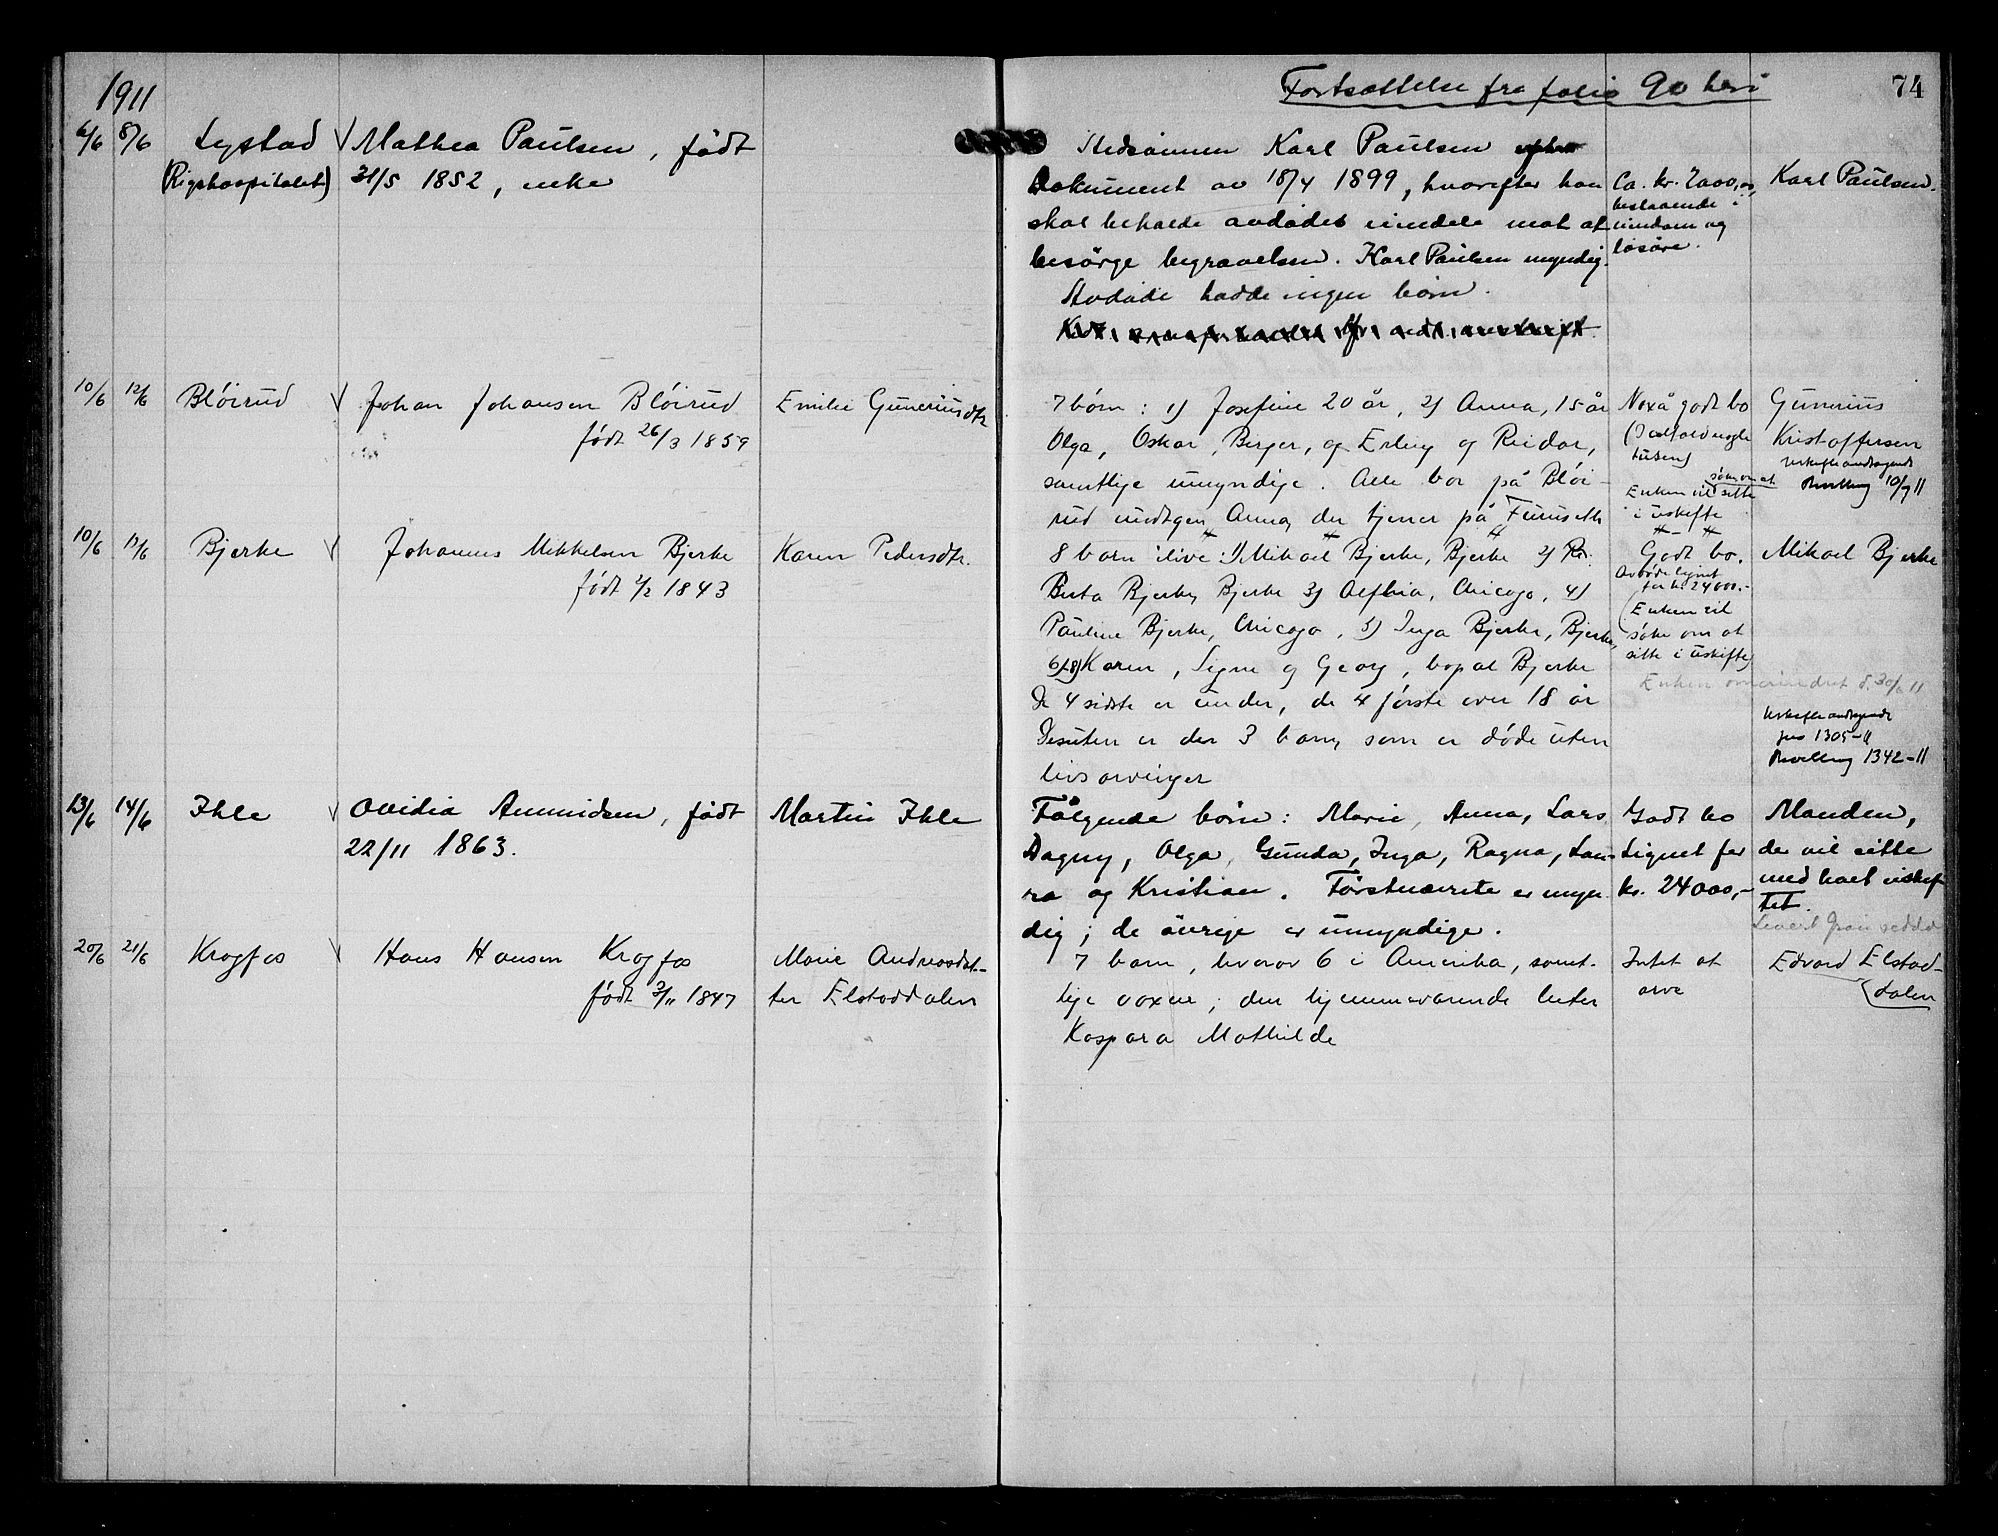 1911
Fortsættelse fra folio 90 heri
74
6/6 8/6 Lystad Mathea Paulsen, født
(Rigshospitalet) 31/5 1852, enke
Stedsønnen Karl Paulsen
Dokument av 18/4 1899, hvorefter han
skal beholde avdødes eiendele mot at
besørge begravelsen. Karl Paulsen myndig.
Avdøde hadde ingen børn.
Ca. kr. 2000,00
bestaaende i
eiendom og
løsøre.
Karl Paulsen.
10/6 12/6 Bløirud Johan Johansen Bløirud Emilie Guneriusdtr
født 26/3 1859
7 børn: 1) Josefine 20 år, 2) Anna, 15 år
Olga, Oskar, Berger, og Erling og Reidar,
samtlige umyndige. Alle bor på Bløi-
rud undtagen Anna, der tjener på Furuseth
Nokså godt bo
(I alfald nogle
tusen)
søke om at
Enken vil sitte
i uskifte
Gunerius
Kristoffersen
Uskifteandragende
Bevilling 10/7 11
10/6 12/6 Bjerke Johannes Mikkelsen Bjerke Karen Pedersdtr.
født 1/2 1843
8 barn ilive: 1) Mikael Bjerke, Bjerke 2)
Berta Bjerke, Bjerke 3) Alfhia, Chicago, 4)
Pauline Bjerke, Chicago, 5) Inga Bjerke, Bjerke,
6)-8) Karen, Signe og Georg, bopæl Bjerke
De 4 sidste er under, de 4 første over 18 år
Desuten er der 3 barn, som er døde uten
livsarvinger
Godt bo.
Avdøde lignet
for kr 24000.-
(Enken vil
søke om at
sitte i uskifte)
Enken omerindret d. 30/6 11
Mikael Bjerke
Uskifteandragende
jno 1305-11
Bevilling 1342-11
13/6 14/6 Ihle Ovidia Amundsen, født Martin Ihle
22/11 1863.
Følgende børn: Marie, Anna, Lars
Dagny, Olga, Gunda, Inga, Ragna, Lau-
ra og Kristian. Førstnævnte er myn-
dig; de øvrige er umyndige.
Godt bo
Lignet for
kr. 24000,-
Manden,
der vil sitte
med boet uskif-
tet.
20/6 21/6 Krogfos Hans Hansen Krogfos Marie Andreasdat-
født 3/11 1847 ter Elstaddalen
7 barn, hvorav 6 i Amerika, samt-
lige voxne; den hjemmeværende heter
Kaspara Mathilde
Intet at
arve
Edvard Elstad-
dalen